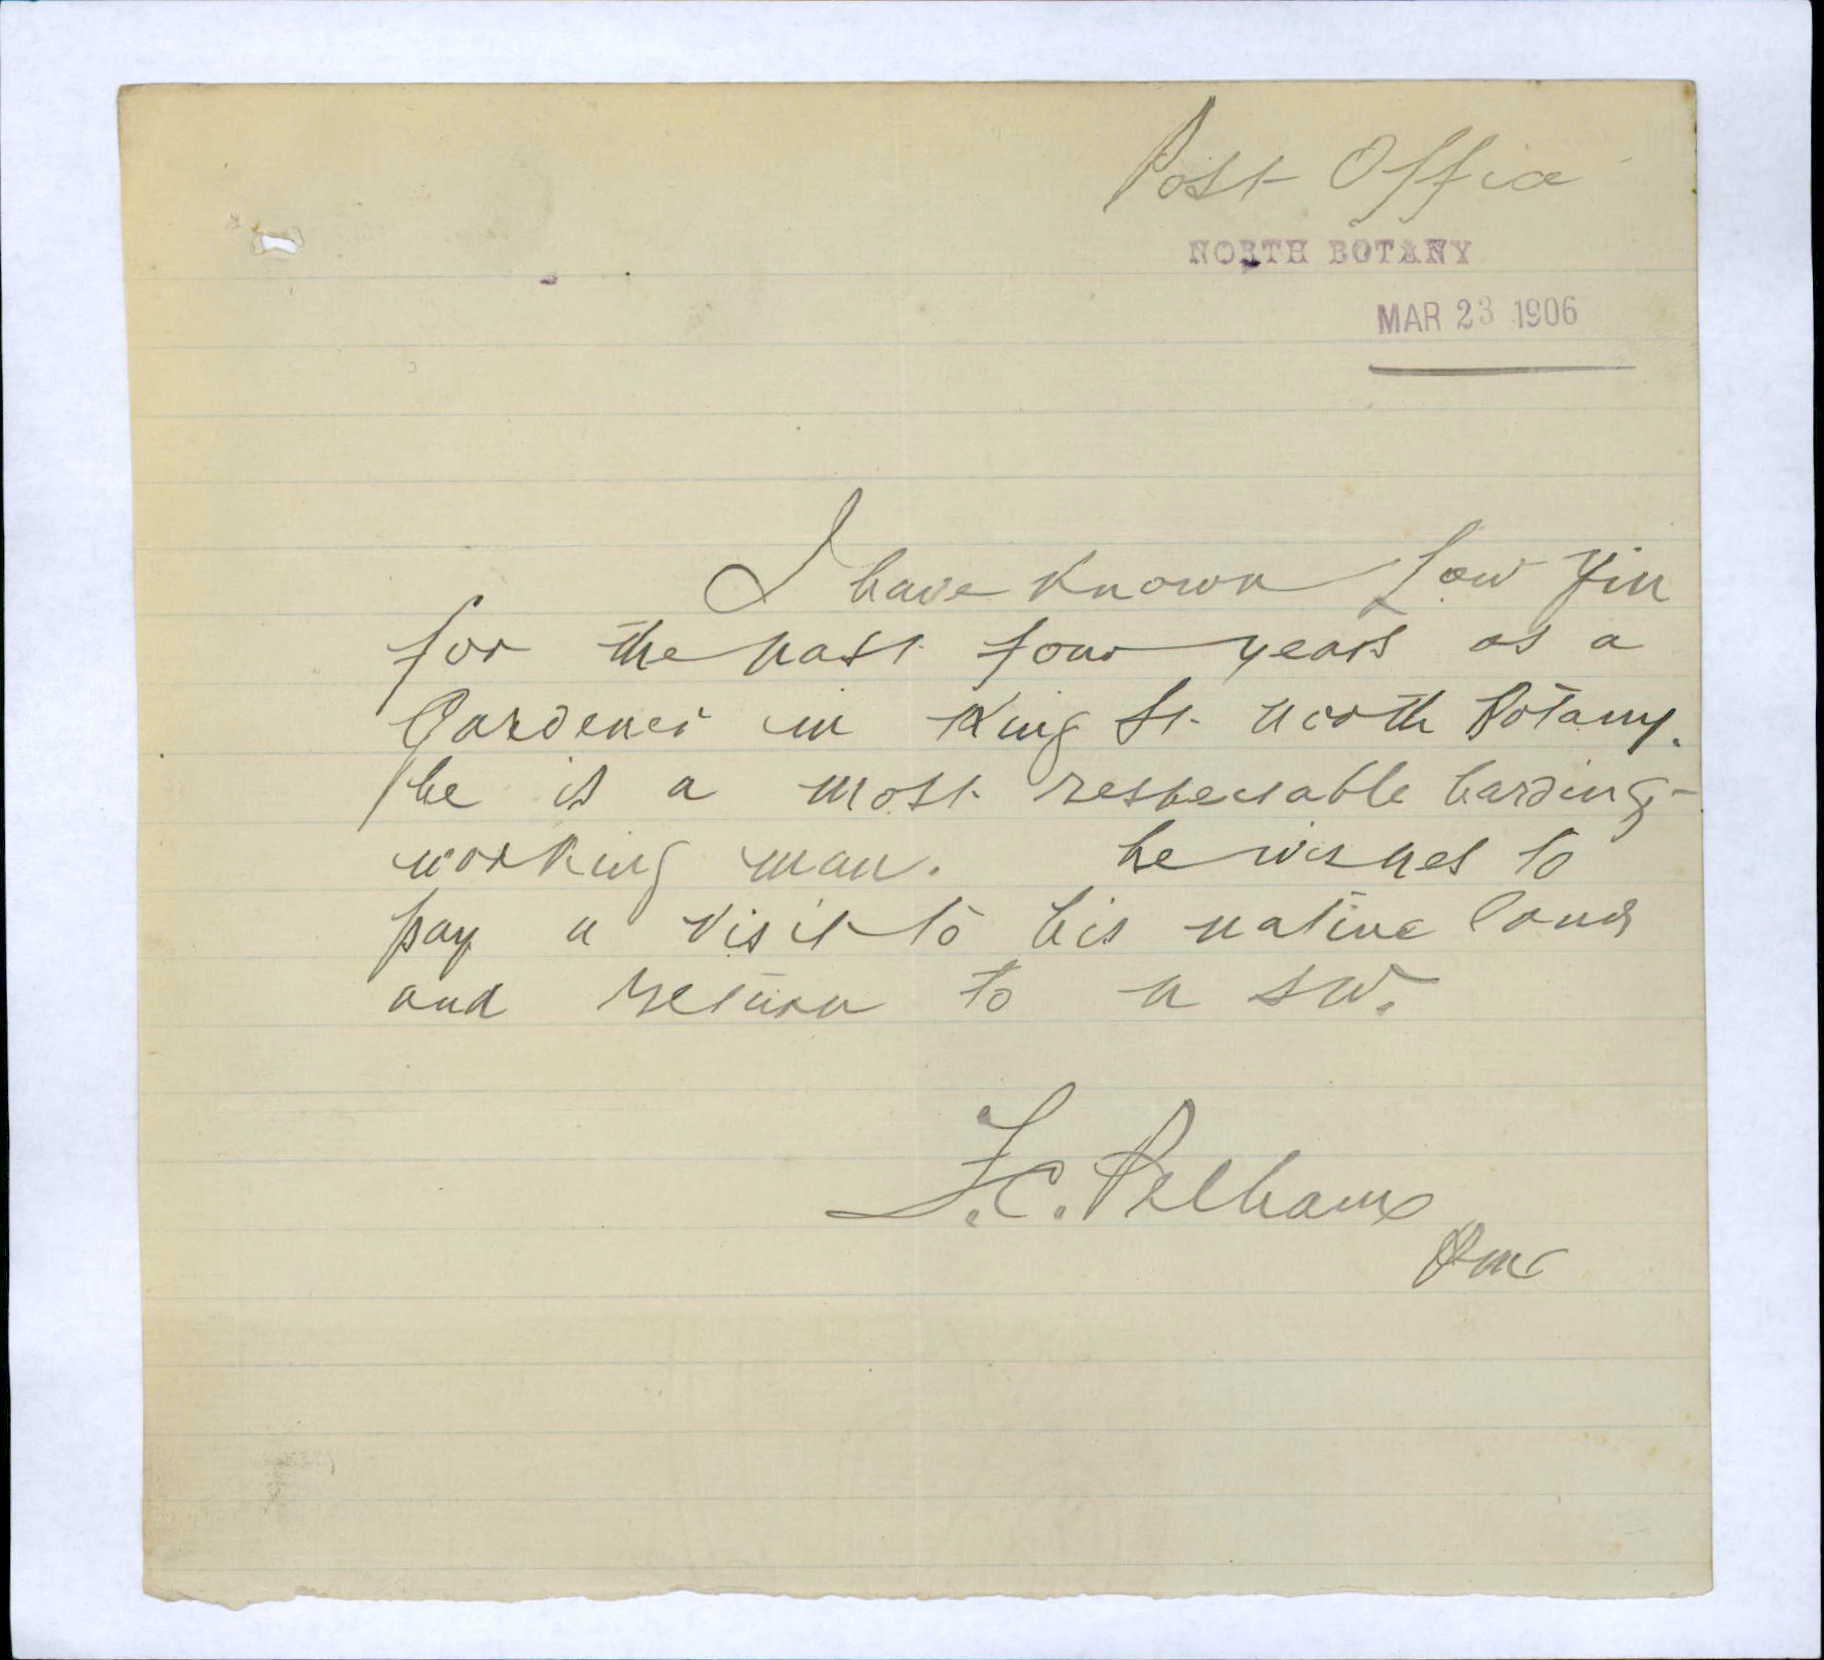 Post Office
NORTH BOTANY
MAR 23 1906
I have known Low Yin
for the past four years as a
Gardener in King St. North Botany.
he is a most respectable harding-
working man. he wishes to
pay a visit to his native land
and return to N S W.
F. C. Pelham
PM